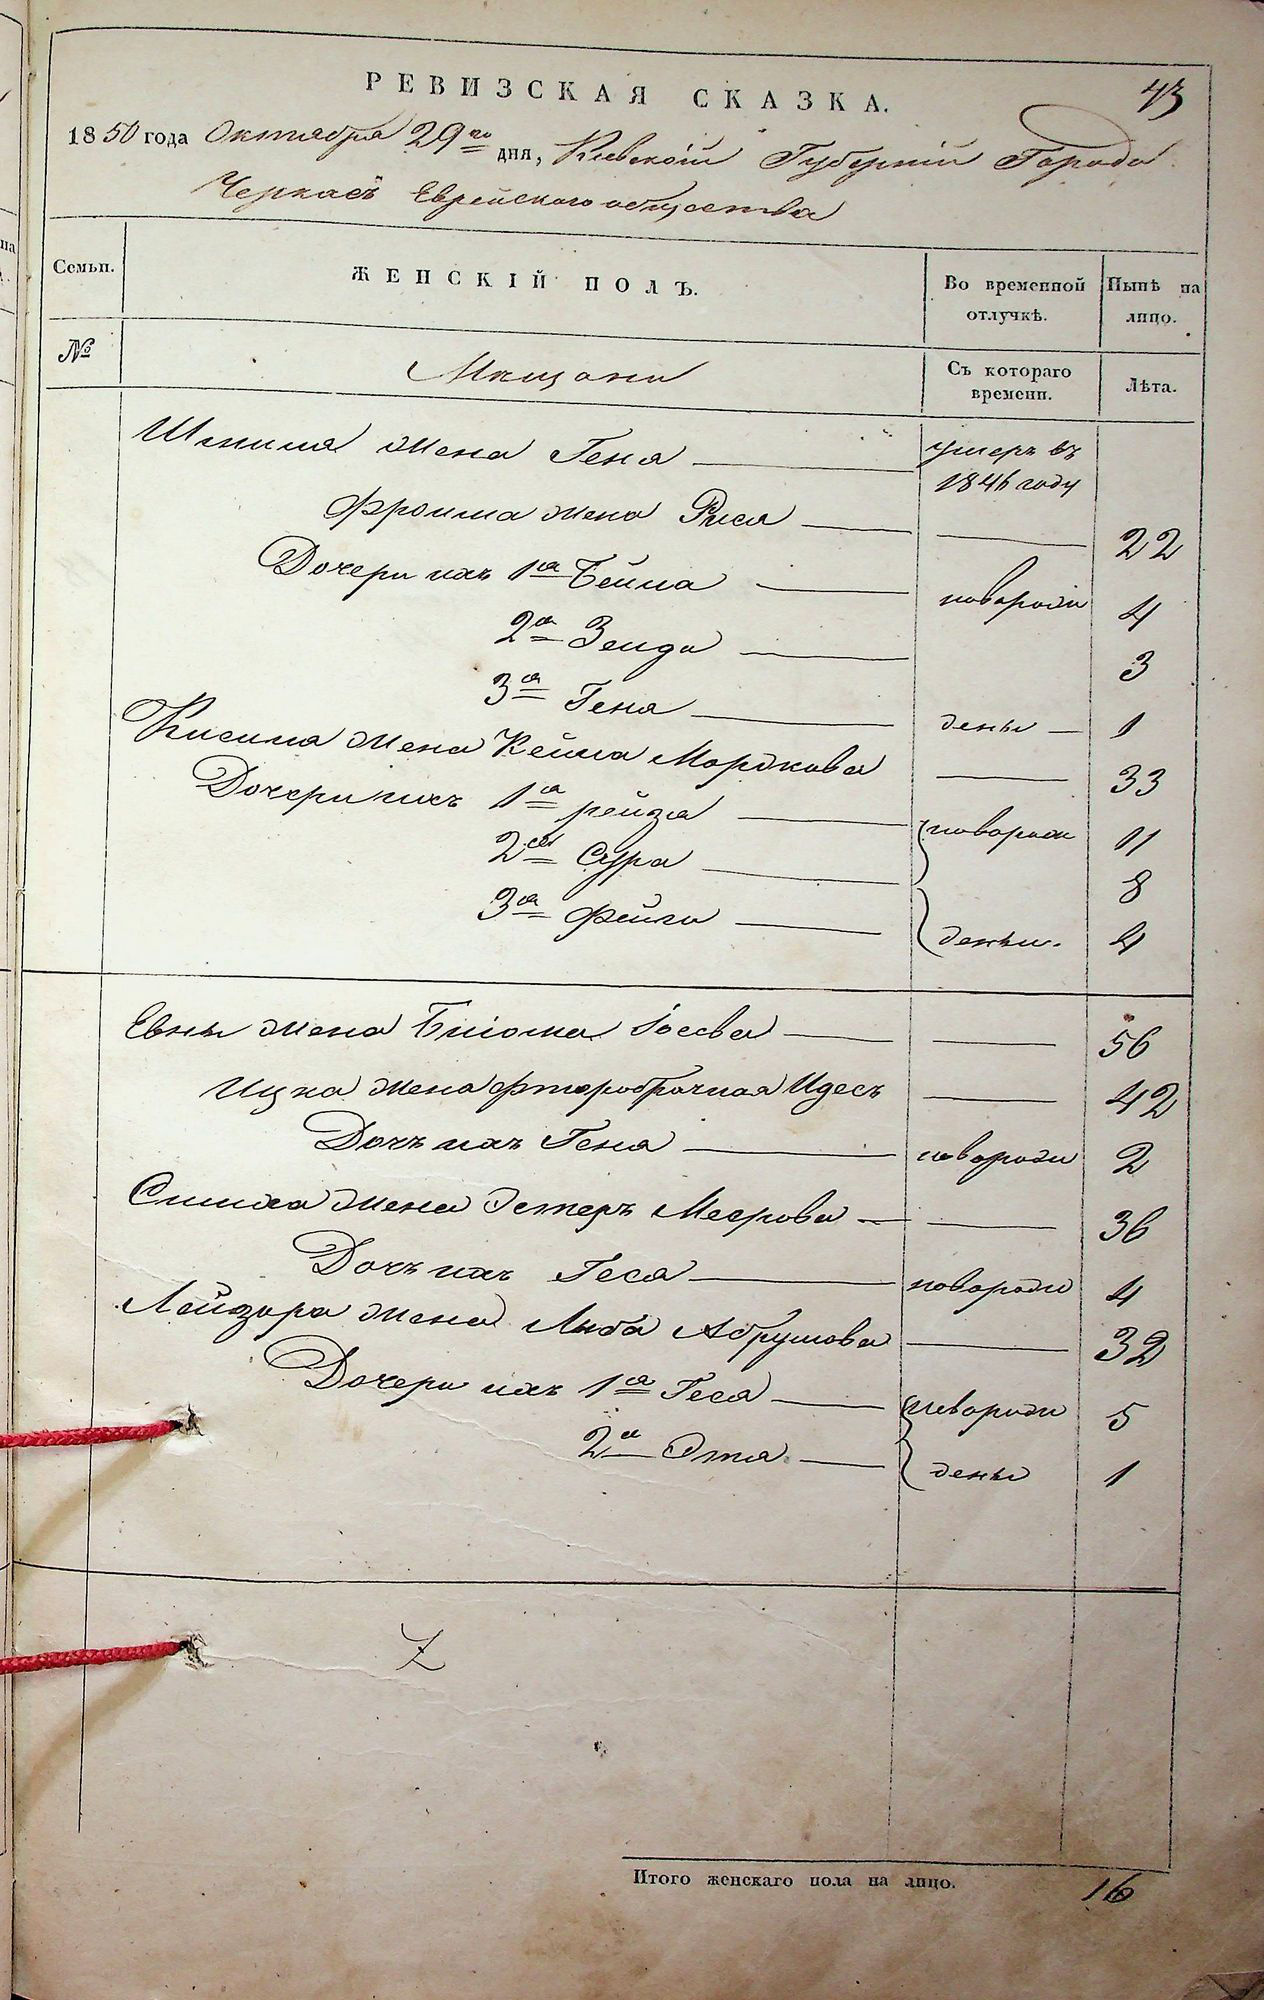 43
РЕВИЗСКАЯ СКАЗКА.
1850 года Октября 29го дня, Киевской Губернии Города
Черкасъ Еврейского общества
Семьи. ЖЕНСКІЙ ПОЛЪ. Во временной отлучкѣ. Нынѣ на лицо.
№ Мещане Съ котораго времени. Лѣта.
Шмиля жена Геня умеръ въ
1846 году
Фроима жена Рися 22
Дочери ихъ 1а Бейла новорож 4
2а Зельда 3
3а Геня дены 1
Кисиля жена Кейла Мордкова 33
Дочери ихъ 1а рейза новорож 11
2а Сура 8
3а Фейга дены. 4
Евны жена Госева 56
Ицка жена фторобрачная Идесъ 42
Дочъ ихъ Геня новорож 2
Симха жена Эстеръ Меерова 36
Дочъ ихъ Геся новорож 4
Лейзора жена Либа Абрумова 32
Дочери ихъ 1а Геся новорож 5
2а Этя дены 1
Итого женскаго пола на лицо. 16